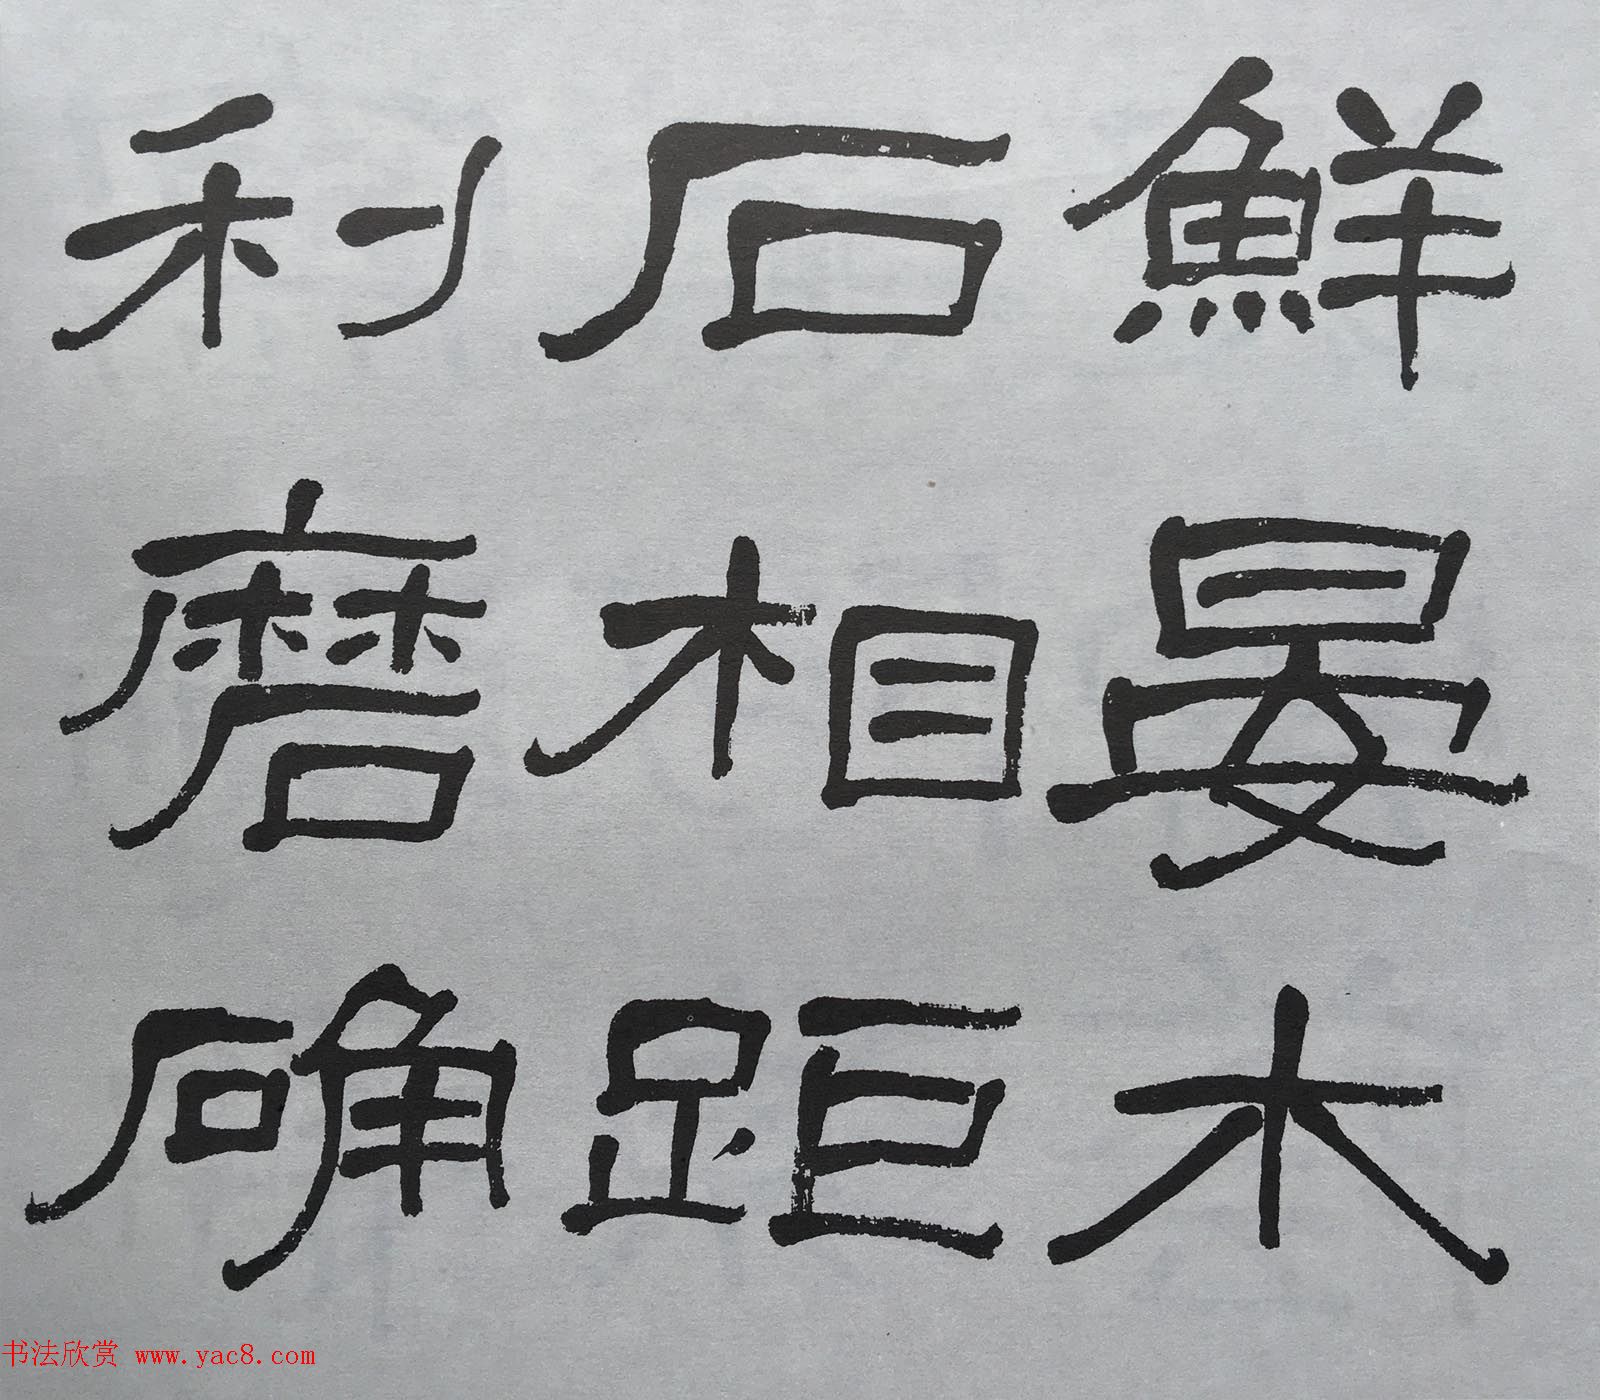 鮮晏木
石相距
利磨确
书法欣赏 www.yac8.com